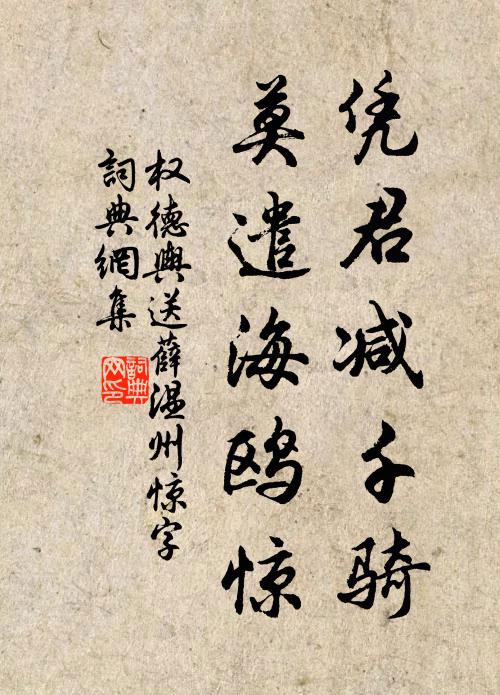 凭君减千骑
莫遣海鸥惊
权德舆送薛温州惊字
詞典網集
詞典
网印